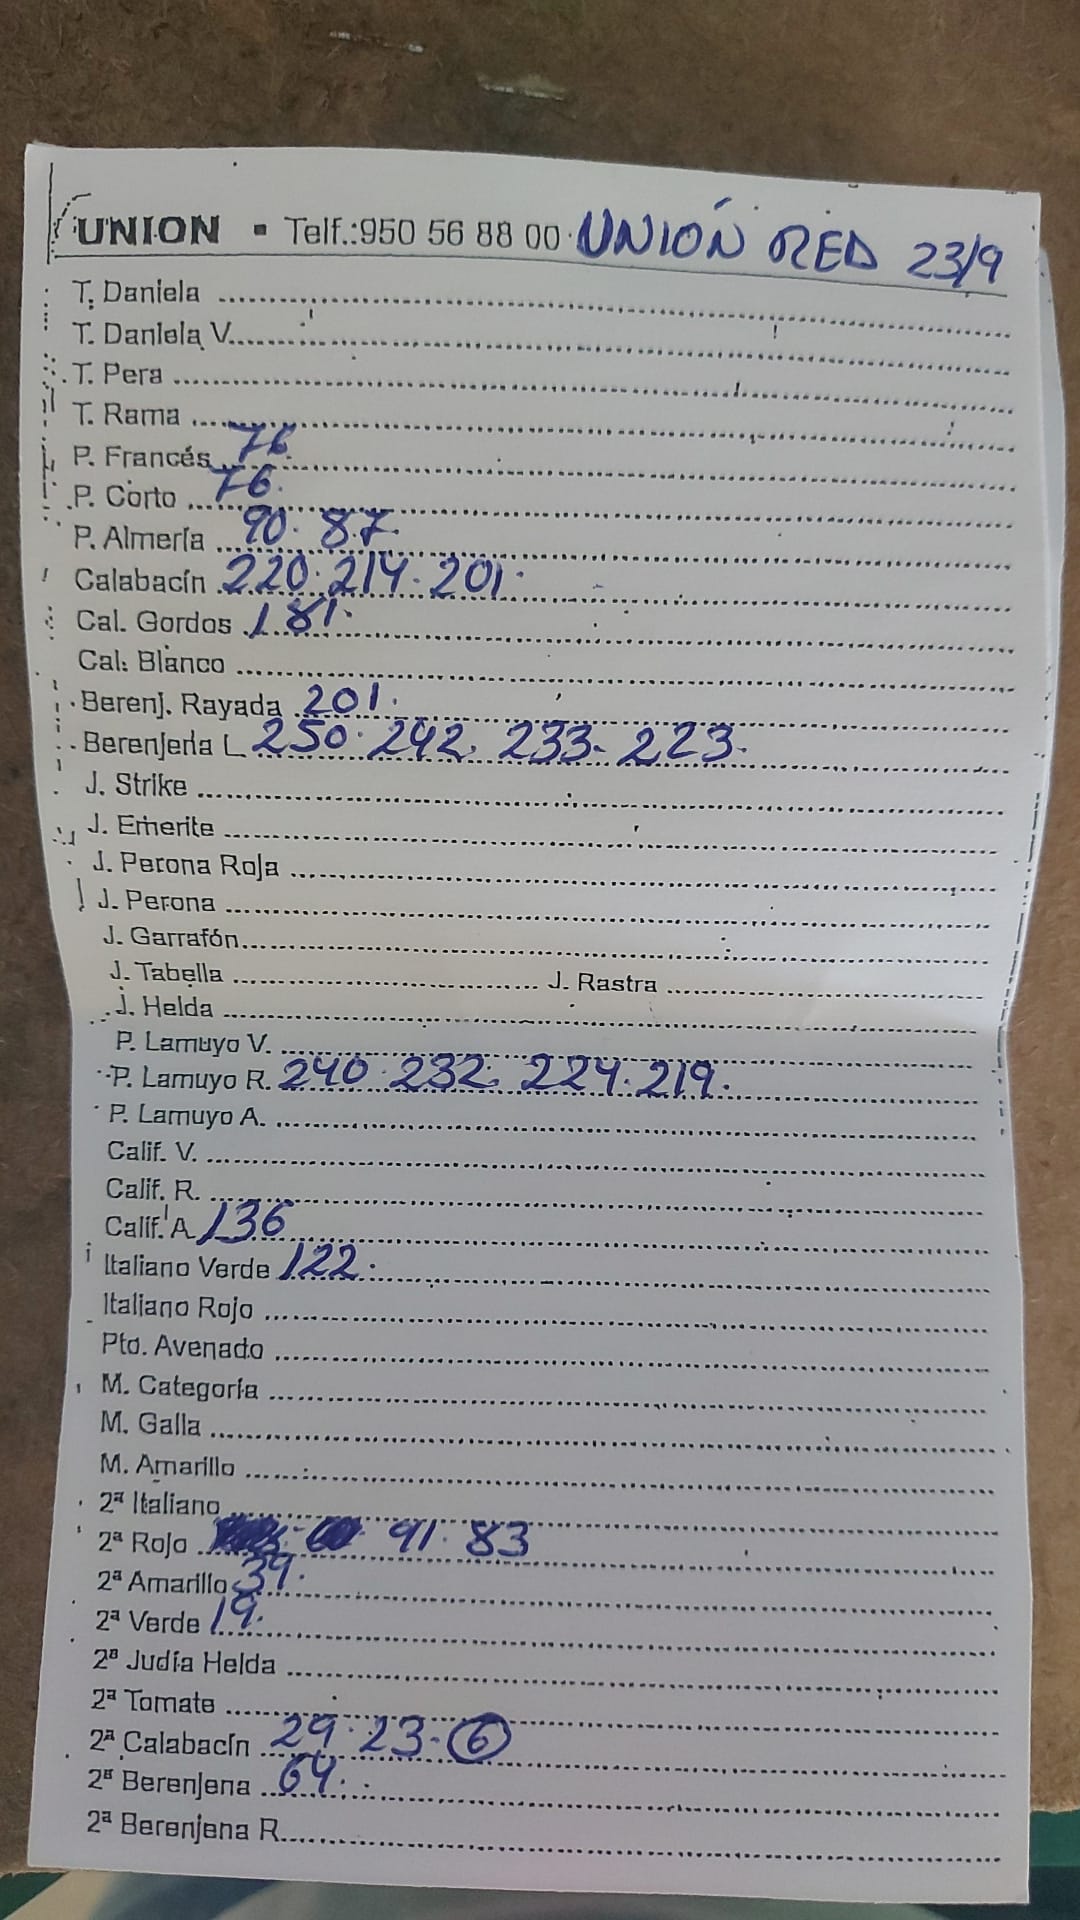 UNION ▪ Telf.:950 56 88 00 UNIÓN RED 23/9
T. Daniela
T. Daniela V.
T. Pera
T. Rama
P. Francés 76
P. Corto 76.
P. Almería 90. 87.
Calabacín 220. 214. 201.
Cal. Gordos 181.
Cal. Blanco
Berenj. Rayada 201.
Berenjena L 250. 242. 233. 223.
J. Strike
J. Emerite
J. Perona Roja
J. Perona
J. Garrafón
J. Tabella J. Rastra
J. Helda
P. Lamuyo V.
P. Lamuyo R. 240. 232. 224. 219.
P. Lamuyo A.
Calif. V.
Calif. R.
Calif. A 136
Italiano Verde 122.
Italiano Rojo
Pto. Avenado
M. Categoría
M. Galla
M. Amarillo
2ª Italiano
2ª Rojo 91. 83
2ª Amarillo 39.
2ª Verde 19.
2ª Judía Helda
2ª Tomate
2ª Calabacín 29. 23. 6
2ª Berenjena 64.
2ª Berenjena R.